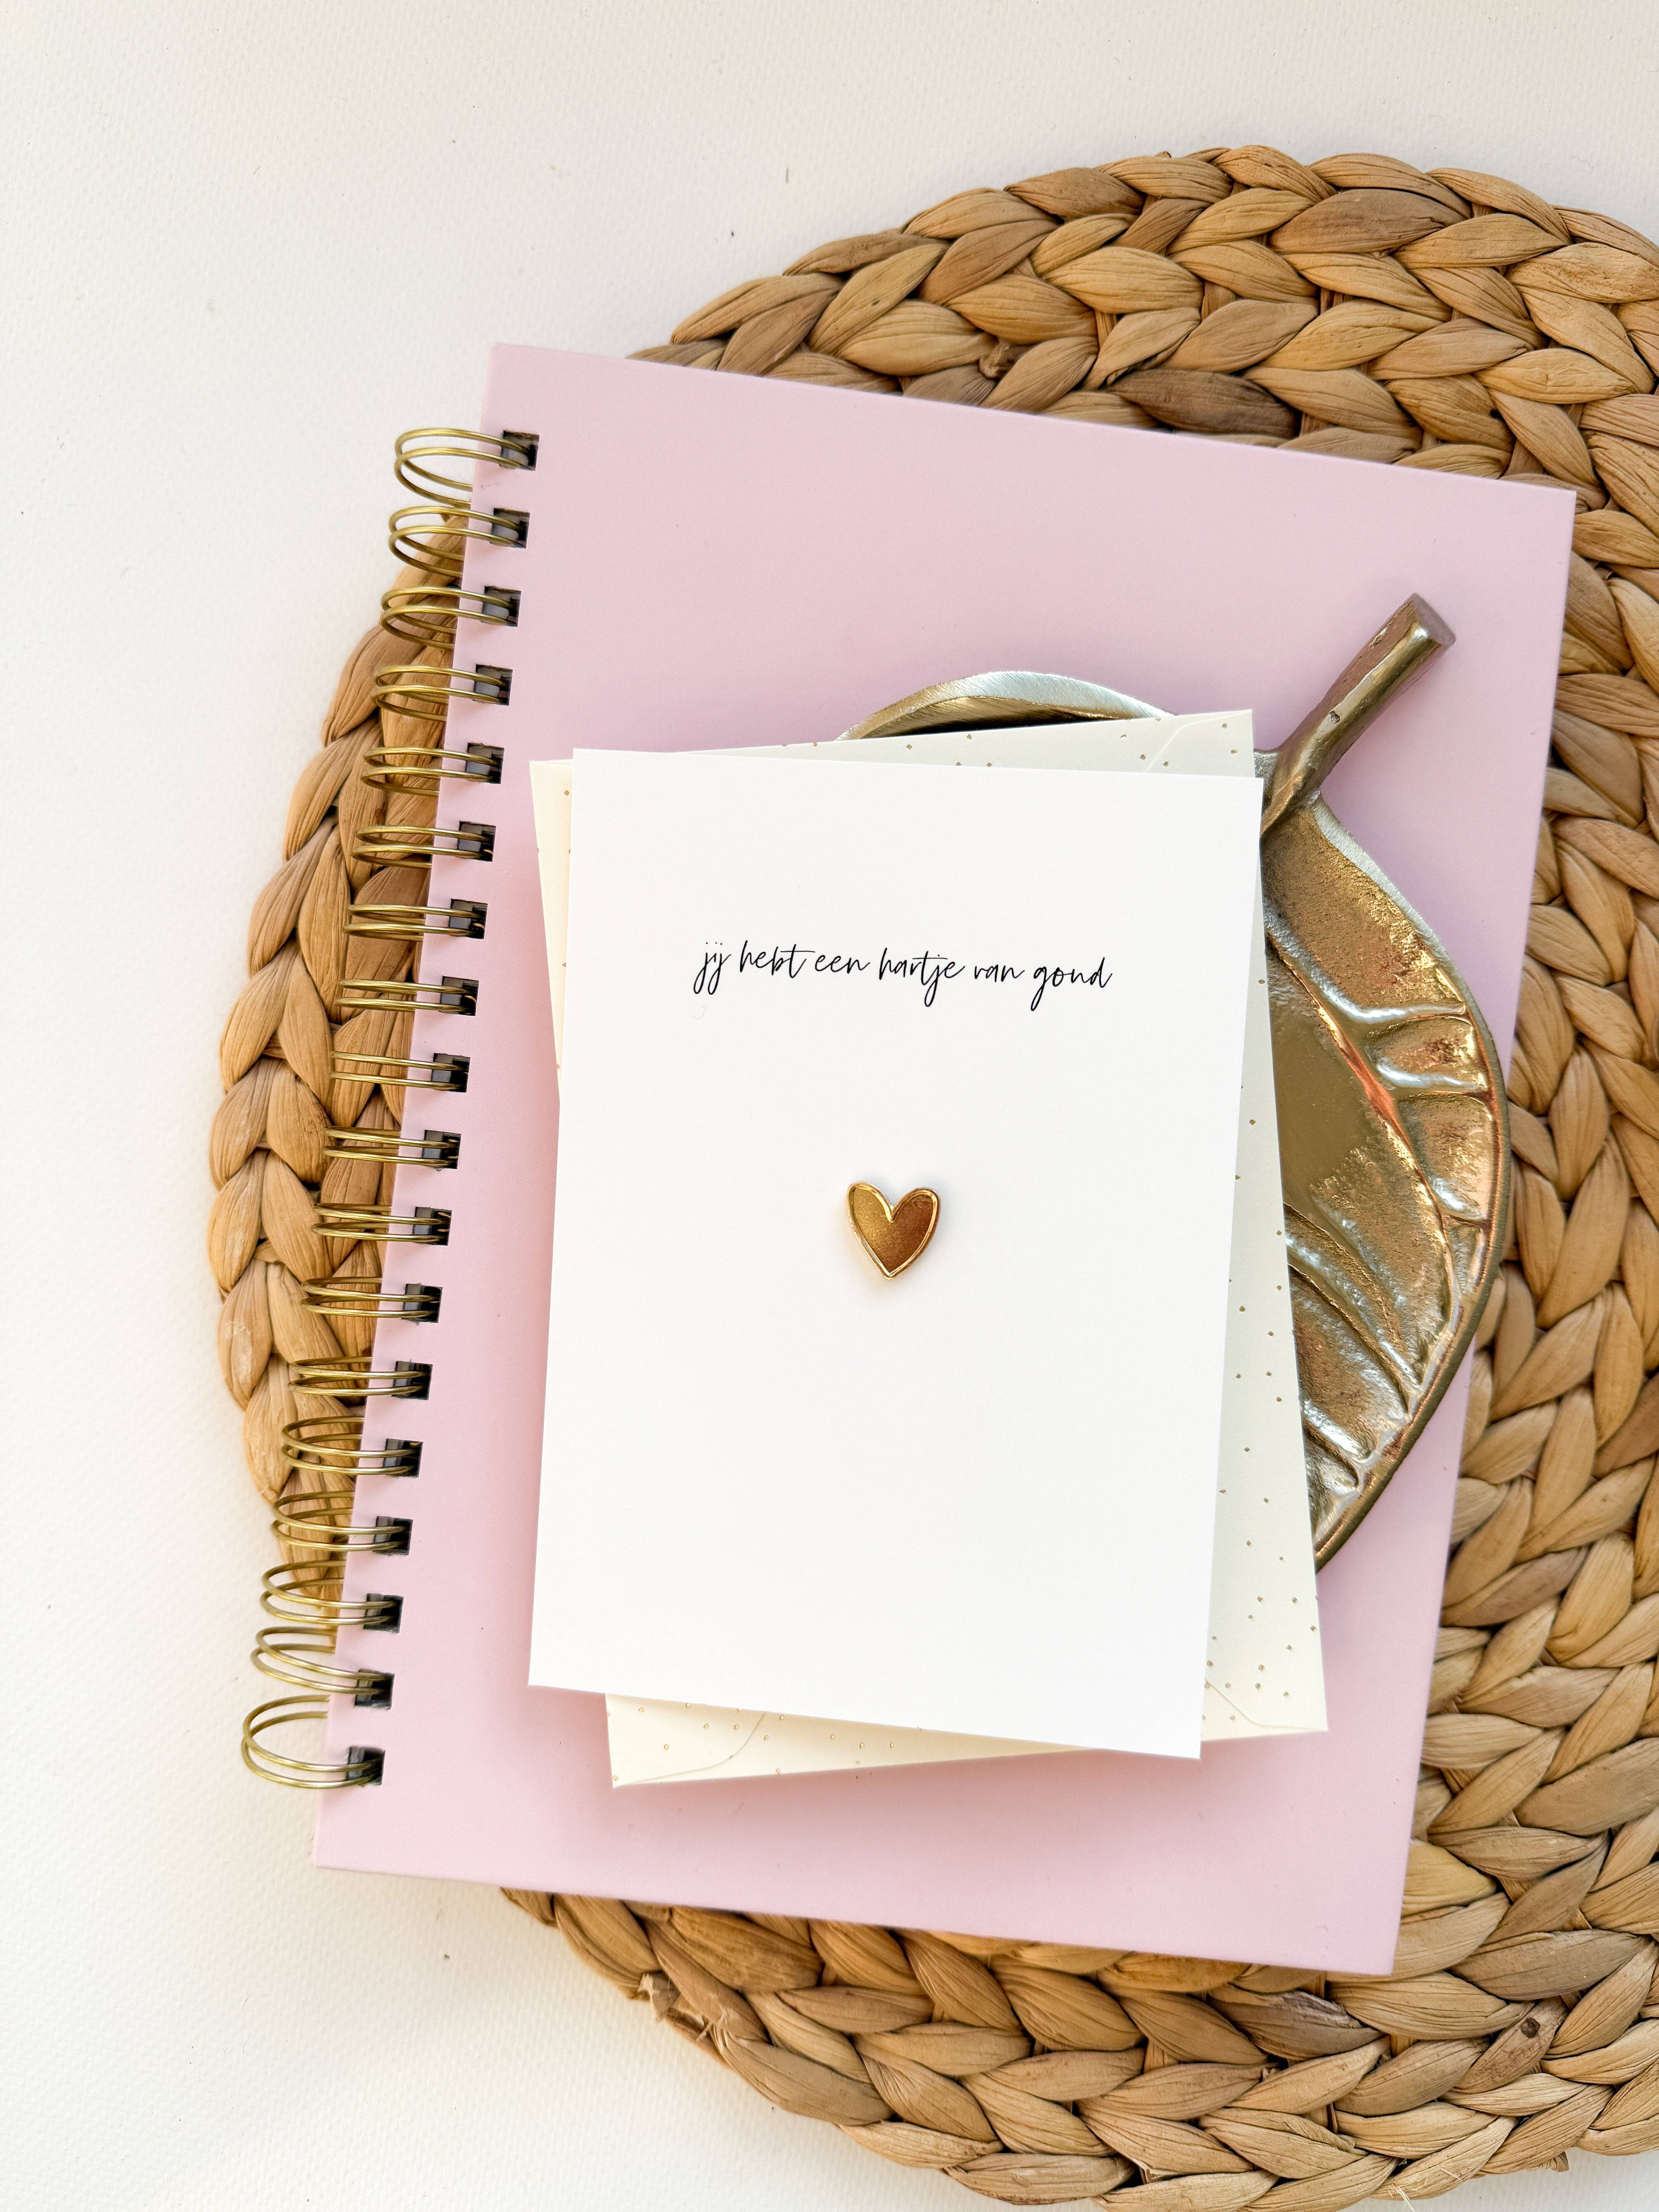 jij hebt een hartje van goud